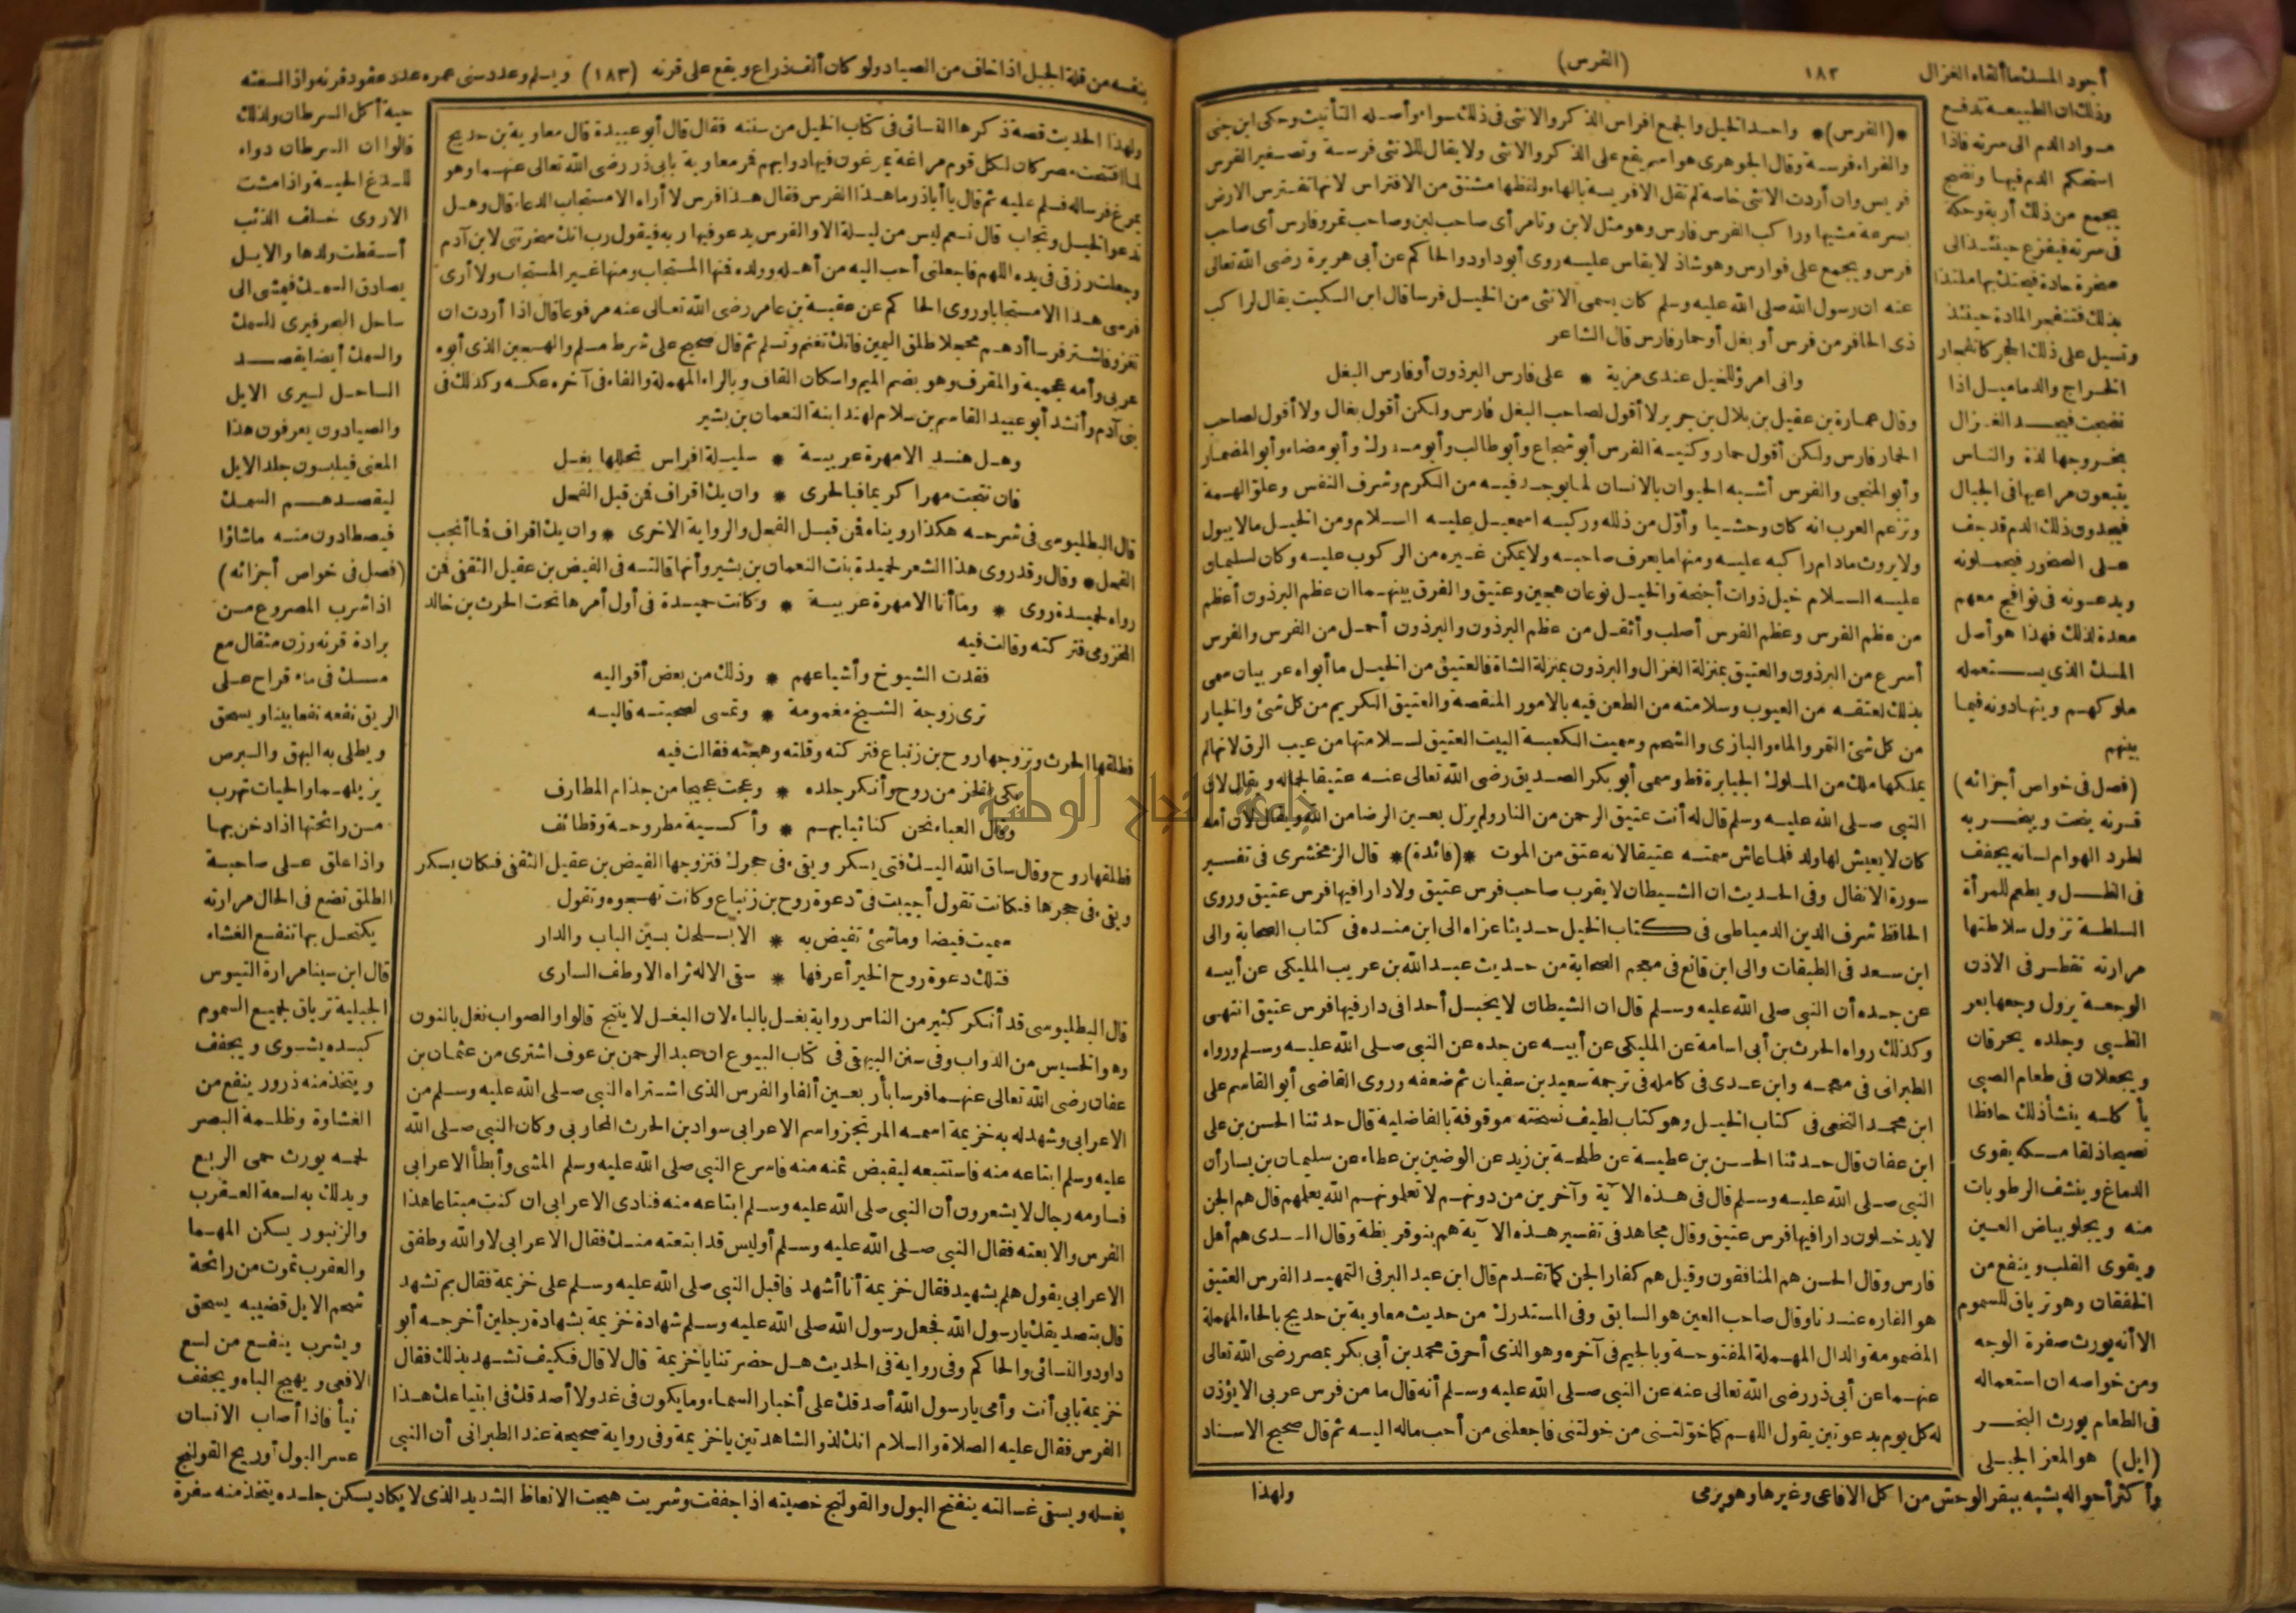 (الفرس)
١٨٢
*(الفرس)* واحد الخيل والجمع افراس الذكر والانثى فى ذلك سواء وأصله التأنيث وحكى ابن جنى
والفراء فرسة وقال الجوهرى هو اسم يقع على الذكر والانثى ولا يقال للانثى فرسة وتصغير الفرس
فريس وان أردت الانثى خاصة لم تقل الا فريسة بالهاء ولفظها مشتق من الافتراس لانها تفترس الارض
بسرعة مشيها وراكب الفرس فارس وهو مثل لابن وتامر أى صاحب لبن وصاحب تمر وفارس أى صاحب
فرس ويجمع على فوارس وهو شاذ لا يقاس عليه روى أبو داود والحاكم عن أبى هريرة رضى الله تعالى
عنه ان رسول الله صلى الله عليه وسلم كان يسمى الانثى من الخيل فرسا قال ابن السكيت يقال لراكب
ذى الحافر من فرس أو بغل أو حمار فارس قال الشاعر
وانى امرؤ للخيل عندى مزية * على فارس البرذون أو فارس البغل
وقال عمارة بن عقيل بن بلال بن جرير لا أقول لصاحب البغل فارس ولكن أقول بغال ولا أقول لصاحب
الحمار فارس ولكن أقول حمار وكنية الفرس أبو شجاع وأبو طالب وأبو مدرك وأبو مضاء وأبو المضمار
وأبو المنجى والفرس أشبه الحيوان بالانسان لما يوجد فيه من الكرم وشرف النفس وعلو الهمة
وتزعم العرب انه كان وحشيا وأول من ذلله وركبه اسمعيل عليه السلام ومن الخيل ما لا يبول
ولا يروث مادام راكبه عليه ومنها ما يعرف صاحبه ولا يمكن غيره من الركوب عليه وكان لسليمان
عليه السلام خيل ذوات أجنحة والخيل نوعان هجين وعتيق والفرق بينهما ان عظم البرذون أعظم
من عظم الفرس وعظم الفرس أصلب وأثقل من عظم البرذون والبرذون أحمل من الفرس والفرس
أسرع من البرذون والعتيق بمنزلة الغزال والبرذون بمنزلة الشاة فالعتيق من الخيل ما أبواه عربيان سمى
بذلك لعتقه من العيوب وسلامته من الطعن فيه بالامور المنقصة والعتيق الكريم من كل شئ والخيار
من كل شئ التمر والماء والبازى والشحم وسميت الكعبة البيت العتيق لسلامتها من عيب الرق لانها لم
يملكها ملك من الملوك الجبابرة قط وسمى أبو بكر الصديق رضى الله تعالى عنه عتيقا لجماله ويقال لان
النبى صلى الله عليه وسلم قال له أنت عتيق الرحمن من النار ولم يزل بعين الرضا من الله ويقال لان أمه
كان لا يعيش لها ولد فلما عاش سمته عتيقا لانه عتق من الموت *(فائدة)* قال الزمخشرى فى تفسير
سورة الانفال وفى الحديث ان الشيطان لا يقرب صاحب فرس عتيق ولا دارا فيها فرس عتيق وروى
الحافظ شرف الدين الدمياطى فى كتاب الخيل حديثا عزاه الى ابن منده فى كتاب الصحابة والى
ابن سعد فى الطبقات والى ابن قانع فى معجم الصحابة من حديث عبد الله بن عريب المليكى عن أبيه
عن جده أن النبى صلى الله عليه وسلم قال ان الشيطان لا يخبل أحدا فى دار فيها فرس عتيق انتهى
وكذلك رواه الحرث بن أبى اسامة عن المليكى عن أبيه عن جده عن النبى صلى الله عليه وسلم ورواه
الطبرانى فى معجمه وابن عدى فى كامله فى ترجمة سعيد بن سفيان ثم ضعفه وروى القاضى أبو القاسم على
ابن محمد النخعى فى كتاب الخيل وهو كتاب لطيف نسخته موقوفة بالفاضلية قال حدثنا الحسن بن على
ابن عفان قال حدثنا الحسن بن عطية عن طلحة بن زيد عن الوضين بن عطاء عن سليمان بن يسار أن
النبى صلى الله عليه وسلم قال فى هذه الآية وآخرين من دونهم لا تعلمونهم الله يعلمهم قال هم الجن
لا يدخلون دارا فيها فرس عتيق وقال مجاهد فى تفسير هذه الآية هم بنو قريظة وقال السدى هم أهل
فارس وقال الحسن هم المنافقون وقيل هم كفار الجن كما تقدم قال ابن عبد البر فى التمهيد الفرس العتيق
هو الفاره عندنا وقال صاحب العين هو السابق وفى المستدرك من حديث معاوية بن حديج بالحاء المهملة
المضمومة والدال المهملة المفتوحة وبالجيم فى آخره وهو الذى أحرق محمد بن أبى بكر بمصر رضى الله تعالى
عنهما عن أبى ذر رضى الله تعالى عنه عن النبى صلى الله عليه وسلم أنه قال ما من فرس عربى الا يؤذن
له كل يوم بدعوتين يقول اللهم كما خولتنى من خولتنى فاجعلنى من أحب ماله اليه ثم قال صحيح الاسناد
ولهذا
أجود المسك ما ألقاه الغزال
وذلك ان الطبيعة تدفع
مواد الدم الى سرته فاذا
استحكم الدم فيها ونضج
يجمع من ذلك أربة وحكة
فى سرته فيفزع حينئذ الى
صخرة حادة فيحتك بها ملتذا
بذلك فتنفجر المادة حينئذ
وتسيل على ذلك الحجر كانفجار
الخراج والدماميل اذا
نضجت فيجد الغزال
بخروجها لذة والناس
يتبعون مراعيها فى الجبال
فيجدون ذلك الدم قد جف
على الصخور فيحملونه
ويدعونه فى نوافج معهم
معدة لذلك فهذا هو أصل
المسك الذى يستعمله
ملوكهم ويتهادونه فيما
بينهم
(فصل فى خواص أجزائه)
قرنه ينحت ويبخر به
لطرد الهوام لسانه يجفف
فى الظل ويطعم للمرأة
السلطة تزول سلاطتها
مرارته تقطر فى الاذن
الوجعة يزول وجعها بعر
الظبى وجلده يحرقان
ويجعلان فى طعام الصبى
يأكله ينشأ ذلك حافظا
فصيحا ذلقا مسكه يقوى
الدماغ وينشف الرطوبات
منه ويجلو بياض العين
ويقوى القلب وينفع من
الخفقان وهو ترياق للسموم
الا أنه يورث صفرة الوجه
ومن خواصه ان استعماله
فى الطعام يورث البخر
(ايل) هو المعز الجبلى
وأكثر أحواله يشبه ببقر الوحش من أكل الافاعى وغيرها وهو يرمى
بنفسه من قلة الجبل اذا خاف من الصياد ولو كان ألف ذراع ويقع على قرنه (١٨٣) ويسلم وعدد سنى عمره عدد عقود قرنه واذا لسعته
ولهذا الحديث قصة ذكرها النسائى فى كتاب الخيل من سننه فقال قال أبو عبيدة قال معاوية بن حديج
لما افتتحت مصر كان لكل قوم مراغة يمرغون فيها دوابهم فمر معاوية بأبى ذر رضى الله تعالى عنهما وهو
يمرغ فرسا له فسلم عليه ثم قال يا أباذر ما هذا الفرس فقال هذا فرس لا أراه الا مستجاب الدعاء قال وهل
تدعو الخيل وتجاب قال نعم ليس من ليلة الا والفرس يدعو فيها ربه فيقول رب انك سخرتنى لابن آدم
وجعلت رزقى فى يده اللهم فاجعلنى أحب اليه من أهله وولده فمنها المستجاب ومنها غير المستجاب ولا أرى
فرسى هذا الا مستجابا وروى الحاكم عن عقبة بن عامر رضى الله تعالى عنه مرفوعا قال اذا أردت ان
تغزو فاشتر فرسا أدهم محجلا طلق اليمين فانك تغنم وتسلم ثم قال صحيح على شرط مسلم والهجين الذى أبوه
عربى وأمه عجمية والمقرف وهو بضم الميم واسكان القاف وبالراء المهملة والفاء فى آخره عكسه وكذلك فى
بنى آدم وأنشد أبو عبيد القاسم بن سلام لهند ابنة النعمان بن بشير
وهل هند الا مهرة عربية * سليلة افراس تحللها بغل
فان نتجت مهرا كريما فبالحرى * وان يك اقراف فمن قبل الفحل
قال البطليوسى فى شرحه هكذا رويناه فمن قبل الفحل والرواية الاخرى * وان يك اقراف فما أنجب
الفحل* وقال وقد روى هذا الشعر لحميدة بنت النعمان بن بشير وأنها قالته فى الفيض بن عقيل الثقفى فمن
رواه لحميدة روى * وما أنا الا مهرة عربية * وكانت حميدة فى أول أمرها تحت الحرث بن خالد
المخزومى فتركته وقالت فيه
فقدت الشيوخ وأشياعهم * وذلك من بعض أقواليه
ترى زوجة الشيخ مغمومة * وتمسى لصحبته قاليه
فطلقها الحرث وتزوجها روح بن زنباع فتركته وقلته وهجته فقالت فيه
بكى الخز من روح وأنكر جلده * وعجت عجيجا من جذام المطارف
وقال العباء نحن كنا ثيابهم * وأكسية مطروحة وقطائف
فطلقها روح وقال ساق الله اليك فتى يسكر ويقىء فى حجرك فتزوجها الفيض بن عقيل الثقفى فكان يسكر
ويقىء فى حجرها فكانت تقول أجيبت فى دعوة روح بن زنباع وكانت تهجوه وتقول
سميت فيضا وما شئ تفيض به * الا بسلحك بين الباب والدار
فتلك دعوة روح الخير أعرفها * سقى الاله ثراه الاوطف السارى
قال البطليوسى قد أنكر كثير من الناس رواية بغل بالباء لان البغل لا ينتج قالوا والصواب نغل بالنون
وهو الخسيس من الدواب وفى سنن البيهقى فى كتاب البيوع ان عبد الرحمن بن عوف اشترى من عثمان بن
عفان رضى الله تعالى عنهما فرسا بأربعين ألفا والفرس الذى اشتراه النبى صلى الله عليه وسلم من
الاعرابى وشهد له به خزيمة اسمه المرتجز واسم الاعرابى سواد بن الحرث المحاربى وكان النبى صلى الله
عليه وسلم ابتاعه منه فاستتبعه ليقبض ثمنه منه فاسرع النبى صلى الله عليه وسلم المشى وأبطأ الاعرابى
فساومه رجال لا يشعرون أن النبى صلى الله عليه وسلم ابتاعه منه فنادى الاعرابى ان كنت مبتاعا هذا
الفرس والا بعته فقال النبى صلى الله عليه وسلم أوليس قد ابتعته منك فقال الاعرابى لا والله وطفق
الاعرابى يقول هلم شهيد فقال خزيمة أنا أشهد فاقبل النبى صلى الله عليه وسلم على خزيمة فقال بم تشهد
قال بتصديقك يا رسول الله فجعل رسول الله صلى الله عليه وسلم شهادة خزيمة بشهادة رجلين أخرجه أبو
داود والنسائى والحاكم وفى رواية فى الحديث هل حضرتنا يا خزيمة قال لا قال فكيف تشهد بذلك فقال
خزيمة بابى أنت وأمى يا رسول الله أصدقك على أخبار السماء وما يكون فى غد ولا أصدقك فى ابتياعك هذا
الفرس فقال عليه الصلاة والسلام انك لذو الشاهدتين يا خزيمة وفى رواية صحيحة عند الطبرانى أن النبى
حية أكل السرطان ولذلك
قالوا ان السرطان دواء
للدغ الحية واذا مشت
الاروى خلف الذئب
أسقطت ولدها والايل
يصادق السمك فيمشى الى
ساحل البحر فيرى السمك
والسمك أيضا يقصد
الساحل ليرى الايل
والصيادون يعرفون هذا
المعنى فيلبسون جلد الايل
ليقصدهم السمك
فيصطادون منه ما شاؤا
(فصل فى خواص أجزائه)
اذا شرب المصروع من
برادة قرنه وزن مثقال مع
مسك فى ماء قراح على
الريق نفعه نفعا بينا ويسحق
ويطلى به البهق والبرص
يزيلهما والحيات تهرب
من رائحتها اذا دخن بها
واذا علق على صاحبة
الطلق تضع فى الحال مرارته
يكتحل بها تنفع الغشاء
قال ابن سينا مرارة التيوس
الجبلية ترياق لجميع السموم
كبده يشوى ويجفف
ويتخذ منه ذرور ينفع من
الغشاوة وظلمة البصر
لحمه يورث حمى الربع
ويدلك به لسعة العقرب
والزنبور يسكن المهما
والعقرب تموت من رائحة
شحم الايل قضيبه يسحق
ويشرب ينفع من لسع
الافعى ويهيج الباه ويجفف
نيأ فاذا أصاب الانسان
عسر البول أو ريح القولنج
يغسله ويسقى غسالته ينفتح البول والقولنج خصيته اذا جففت وشربت هيجت الانعاظ الشديد الذى لا يكاد يسكن جلده يتخذ منه سفرة
جامعة النجاح الوطنية